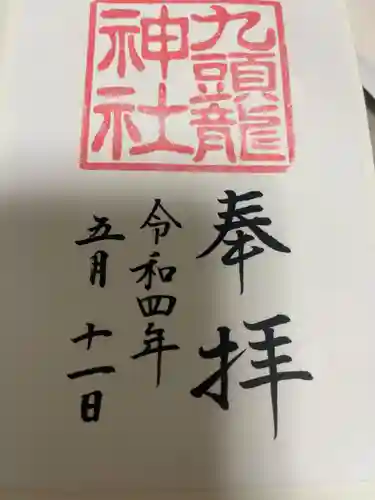 九頭龍
神社
奉拝
令和四年
五月十一日